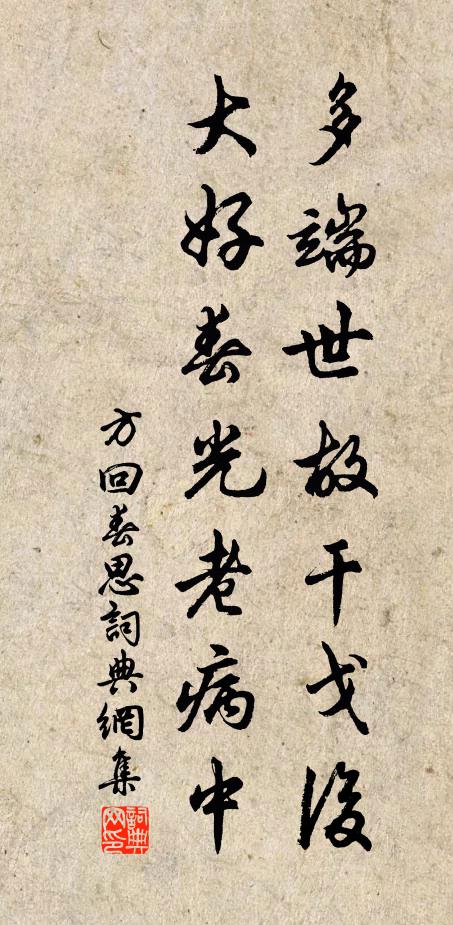 多端世故干戈後
大好春光老病中
方回春思詞典網集
詞典网印